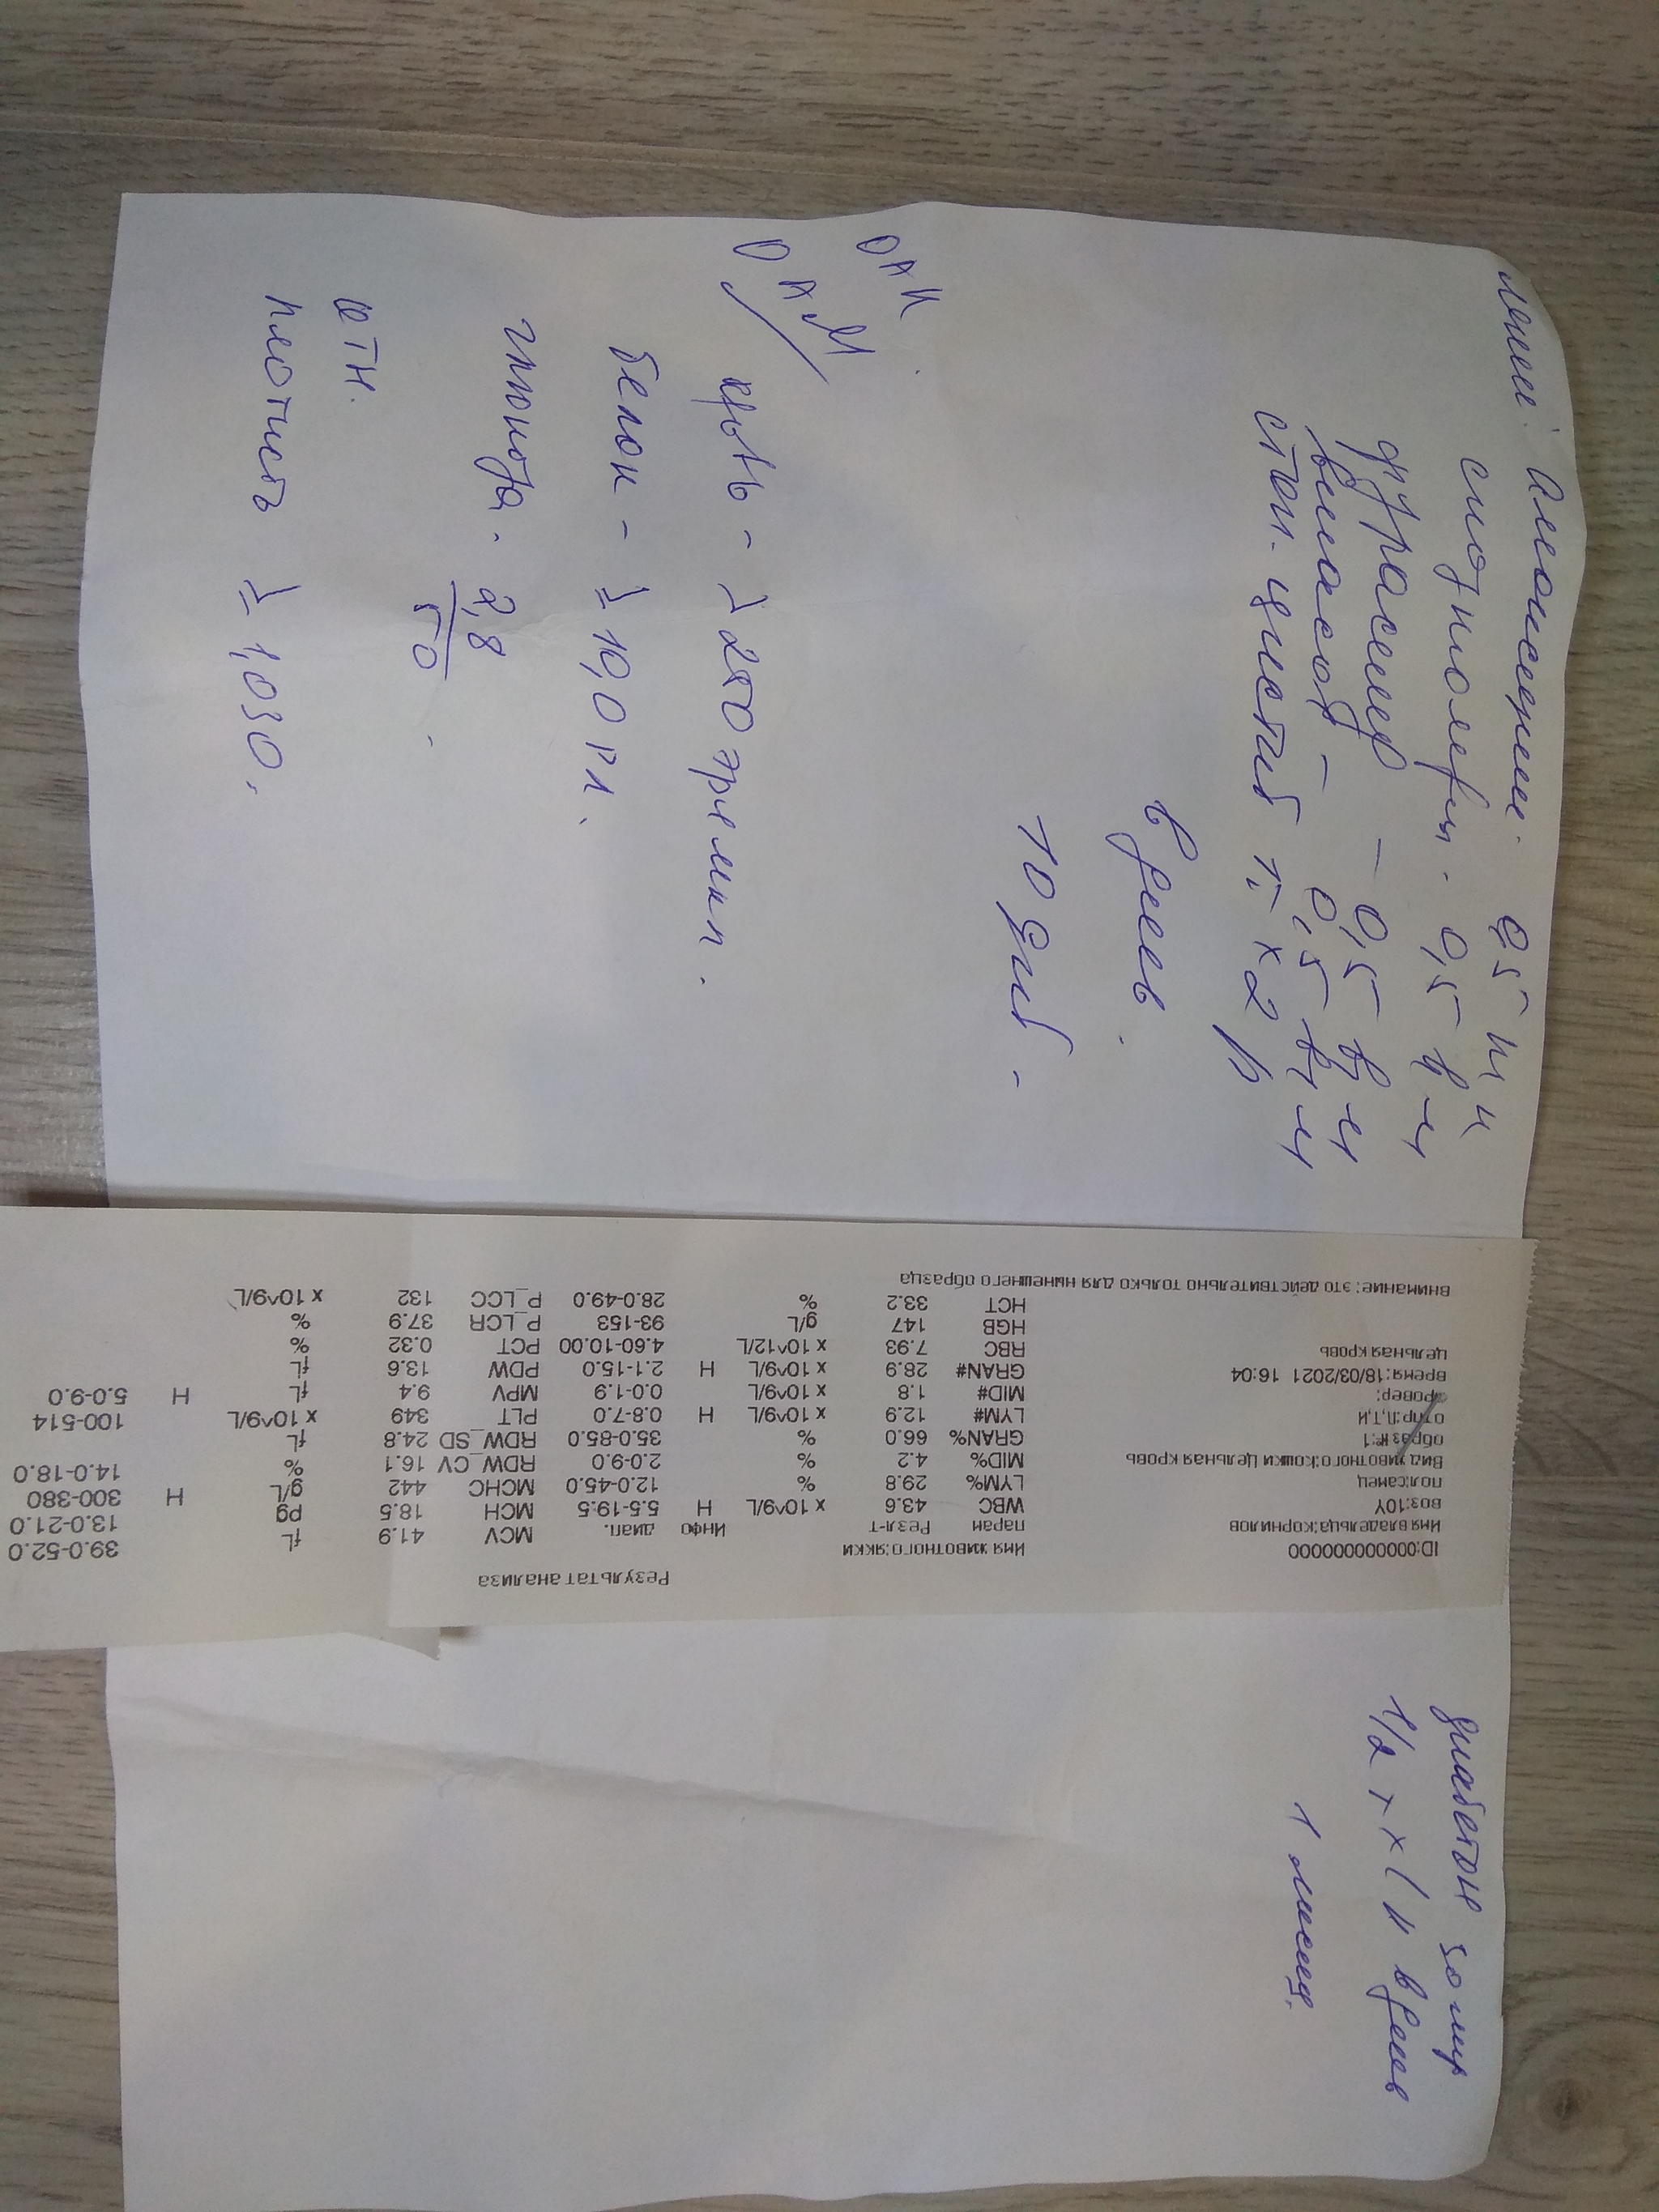 лечен: Амоксецилин. 0,5 п/к
0,5 в/м
фуросемид - 0,5 в/м
викасол - 0,5 в/м
стоп-цистит 1т x 2 р
в день.
10 дней -
ОАК
ОАМ
кровь - ≥ 250 эр/мкл.
белок - ≥ 10,0 г/л.
глюкоза. 2,8
50
отн.
плотность ≥ 1,030.
Результат анализа
ID:00000000000000
Имя владельца:корнилов
воз:10Y
пол:самец
Вид животного:кошки Цельная кровь
образ #:1
отпр:Л,Т,И
провер:
время:18/03/2021 16:04
цельная кровь
Имя животного:якки
парам Резл-т Инфо диап.
WBC 43.6 x 10^9/L H 5.5-19.5
LYM% 29.8 % 12.0-45.0
MID% 4.2 % 2.0-9.0
GRAN% 66.0 % 35.0-85.0
LYM# 12.9 x 10^9/L H 0.8-7.0
MID# 1.8 x 10^9/L 0.0-1.9
GRAN# 28.9 x 10^9/L H 2.1-15.0
RBC 7.93 x 10^12/L 4.60-10.00
HGB 147 g/L 93-153
HCT 33.2 % 28.0-49.0
MCV 41.9 fL 39.0-52.0
MCH 18.5 pg 13.0-21.0
MCHC 442 g/L H 300-380
RDW_CV 16.1 % 14.0-18.0
RDW_SD 24.8 fL
PLT 349 x 10^9/L 100-514
MPV 9.4 fL H 5.0-9.0
PDW 13.6 fL
PCT 0.32 %
P_LCR 37.9 %
P_LCC 132 x 10^9/L
внимание; это действительно только для нынешнего образца
диабетон 30 мг
1/2 т x 1 р в день
1 месяц.